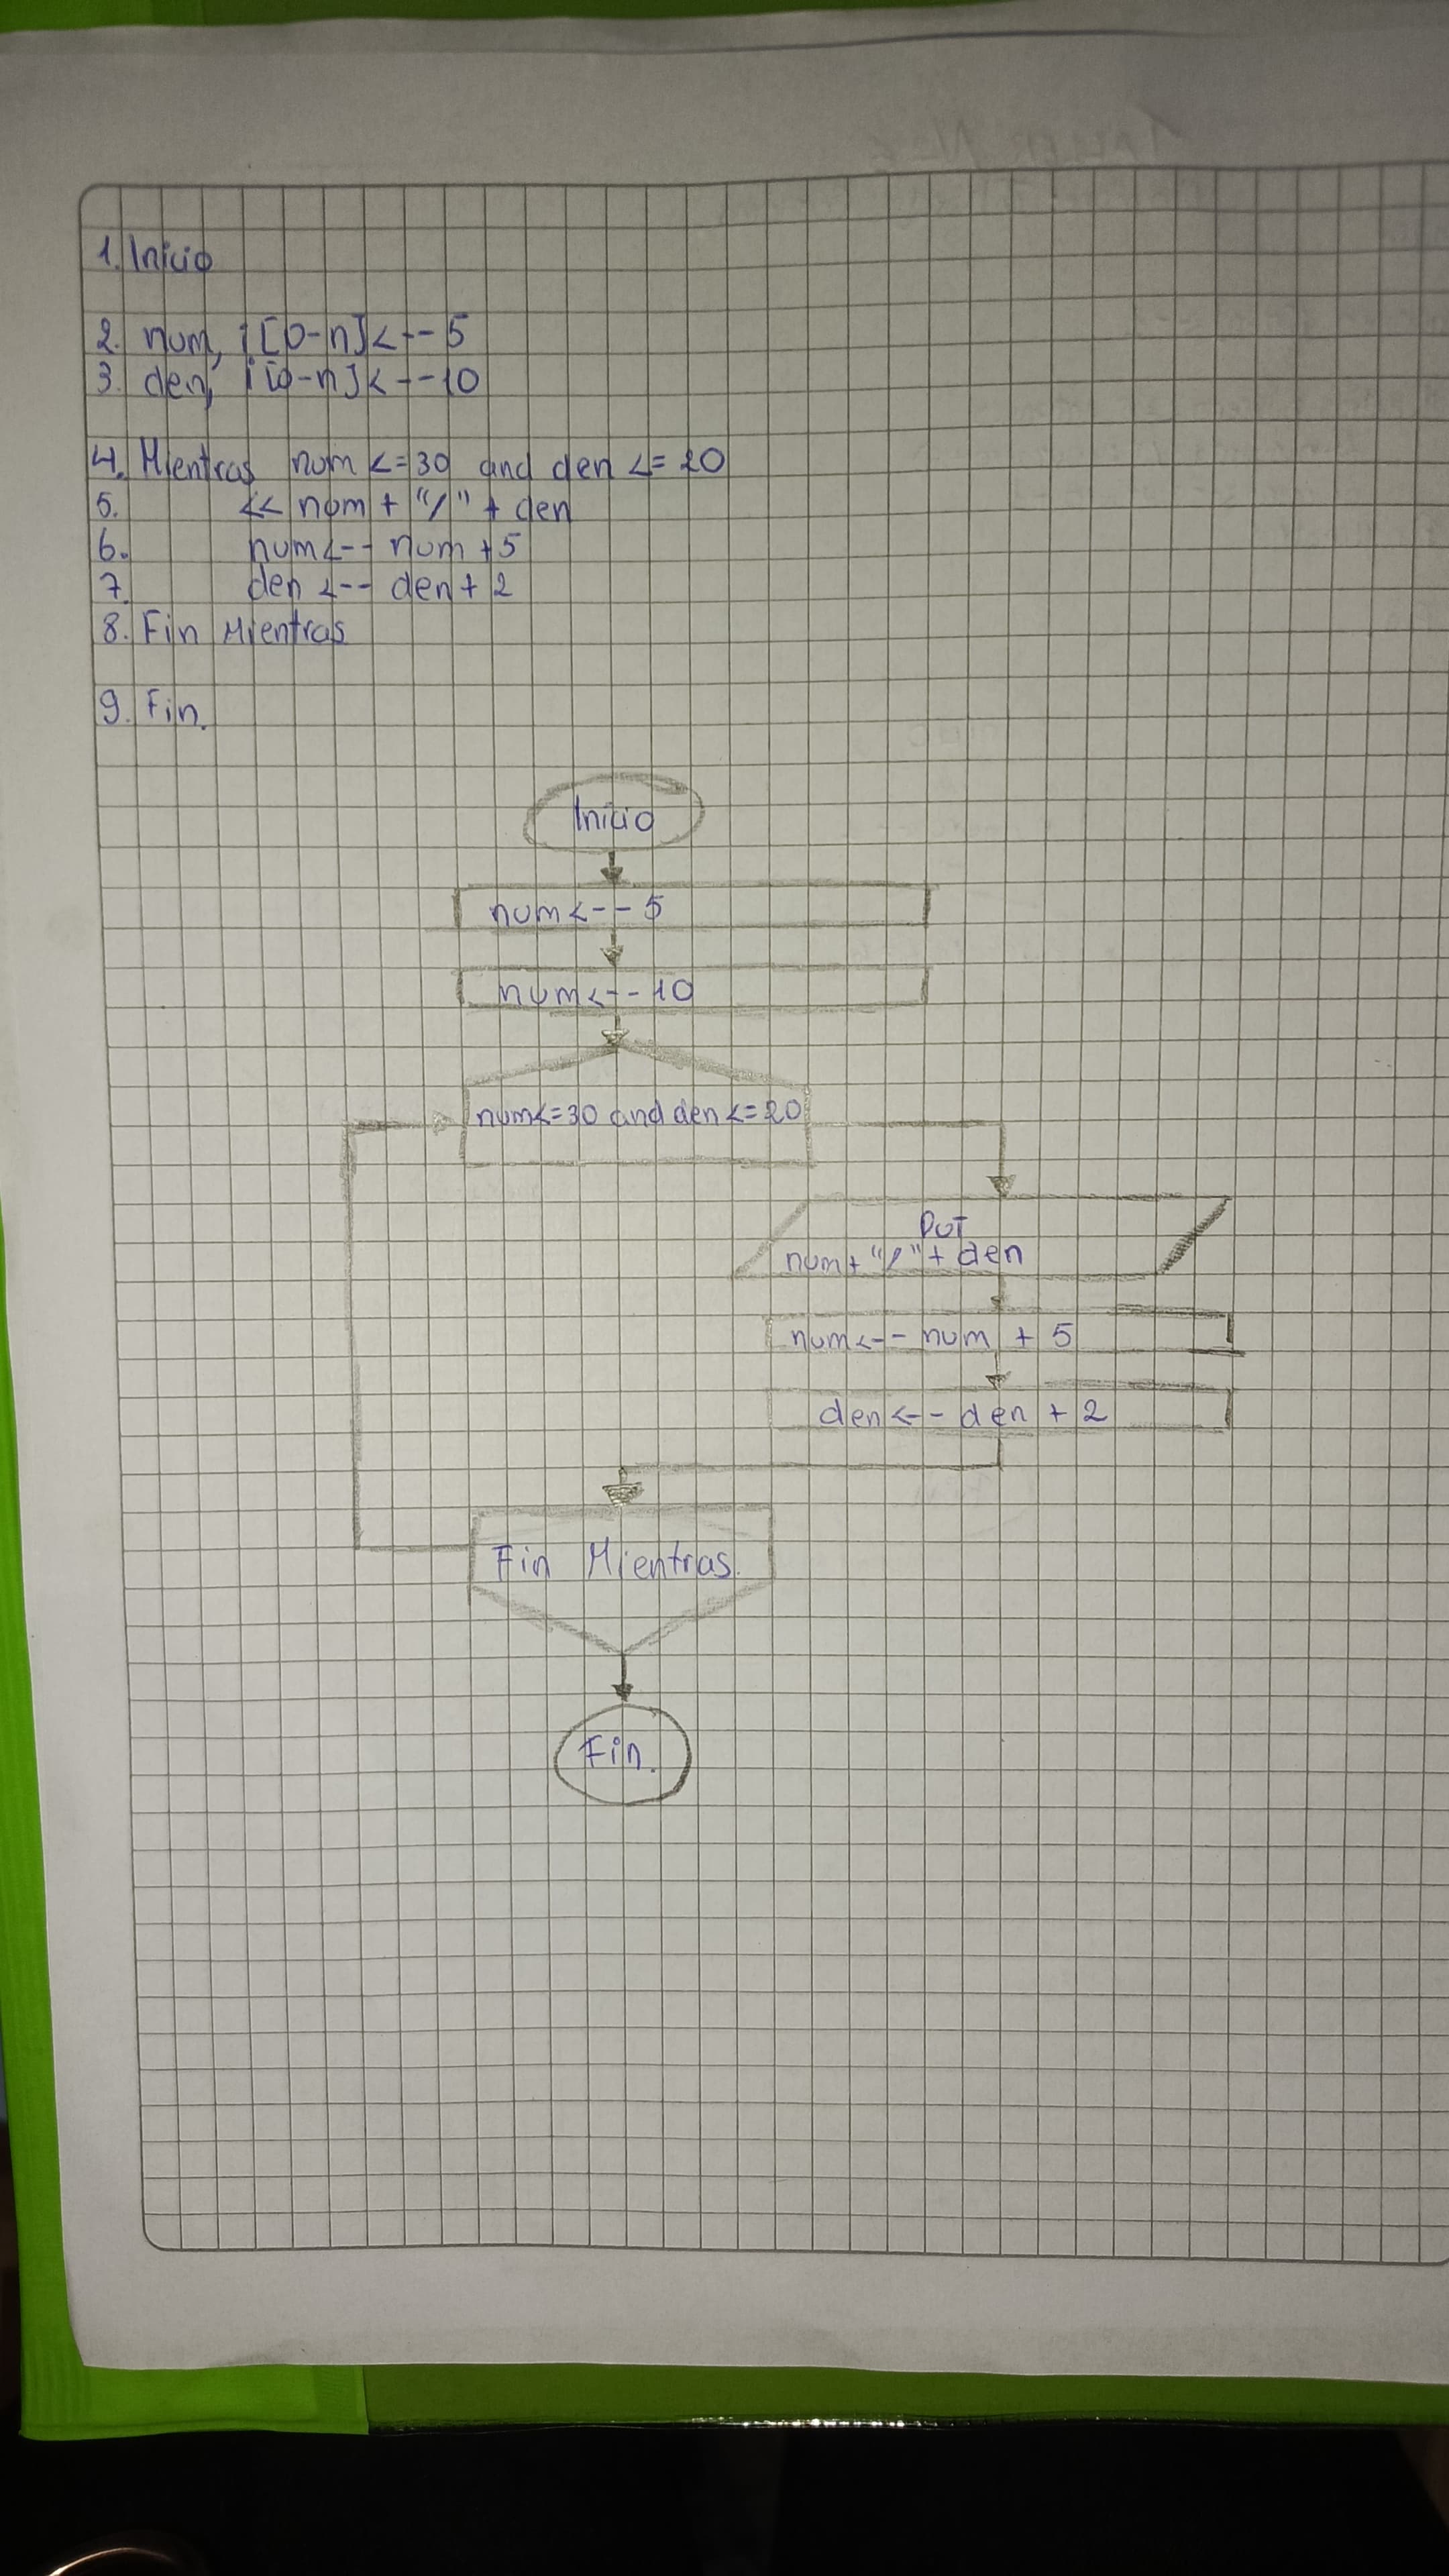 1. Inicio
2. num, i [0-n] <-- 5
3. den, i [0-n] <-- 10
4. Mientras num <= 30 and den <= 20
5. << num + "/" + den
6. num <-- num + 5
7. den <-- den + 2
8. Fin Mientras
9. Fin.
Inicio
num <-- 5
num <-- 10
num <= 30 and den <= 20
OUT
num + "/" + den
num <-- num + 5
den <-- den + 2
Fin Mientras.
Fin.